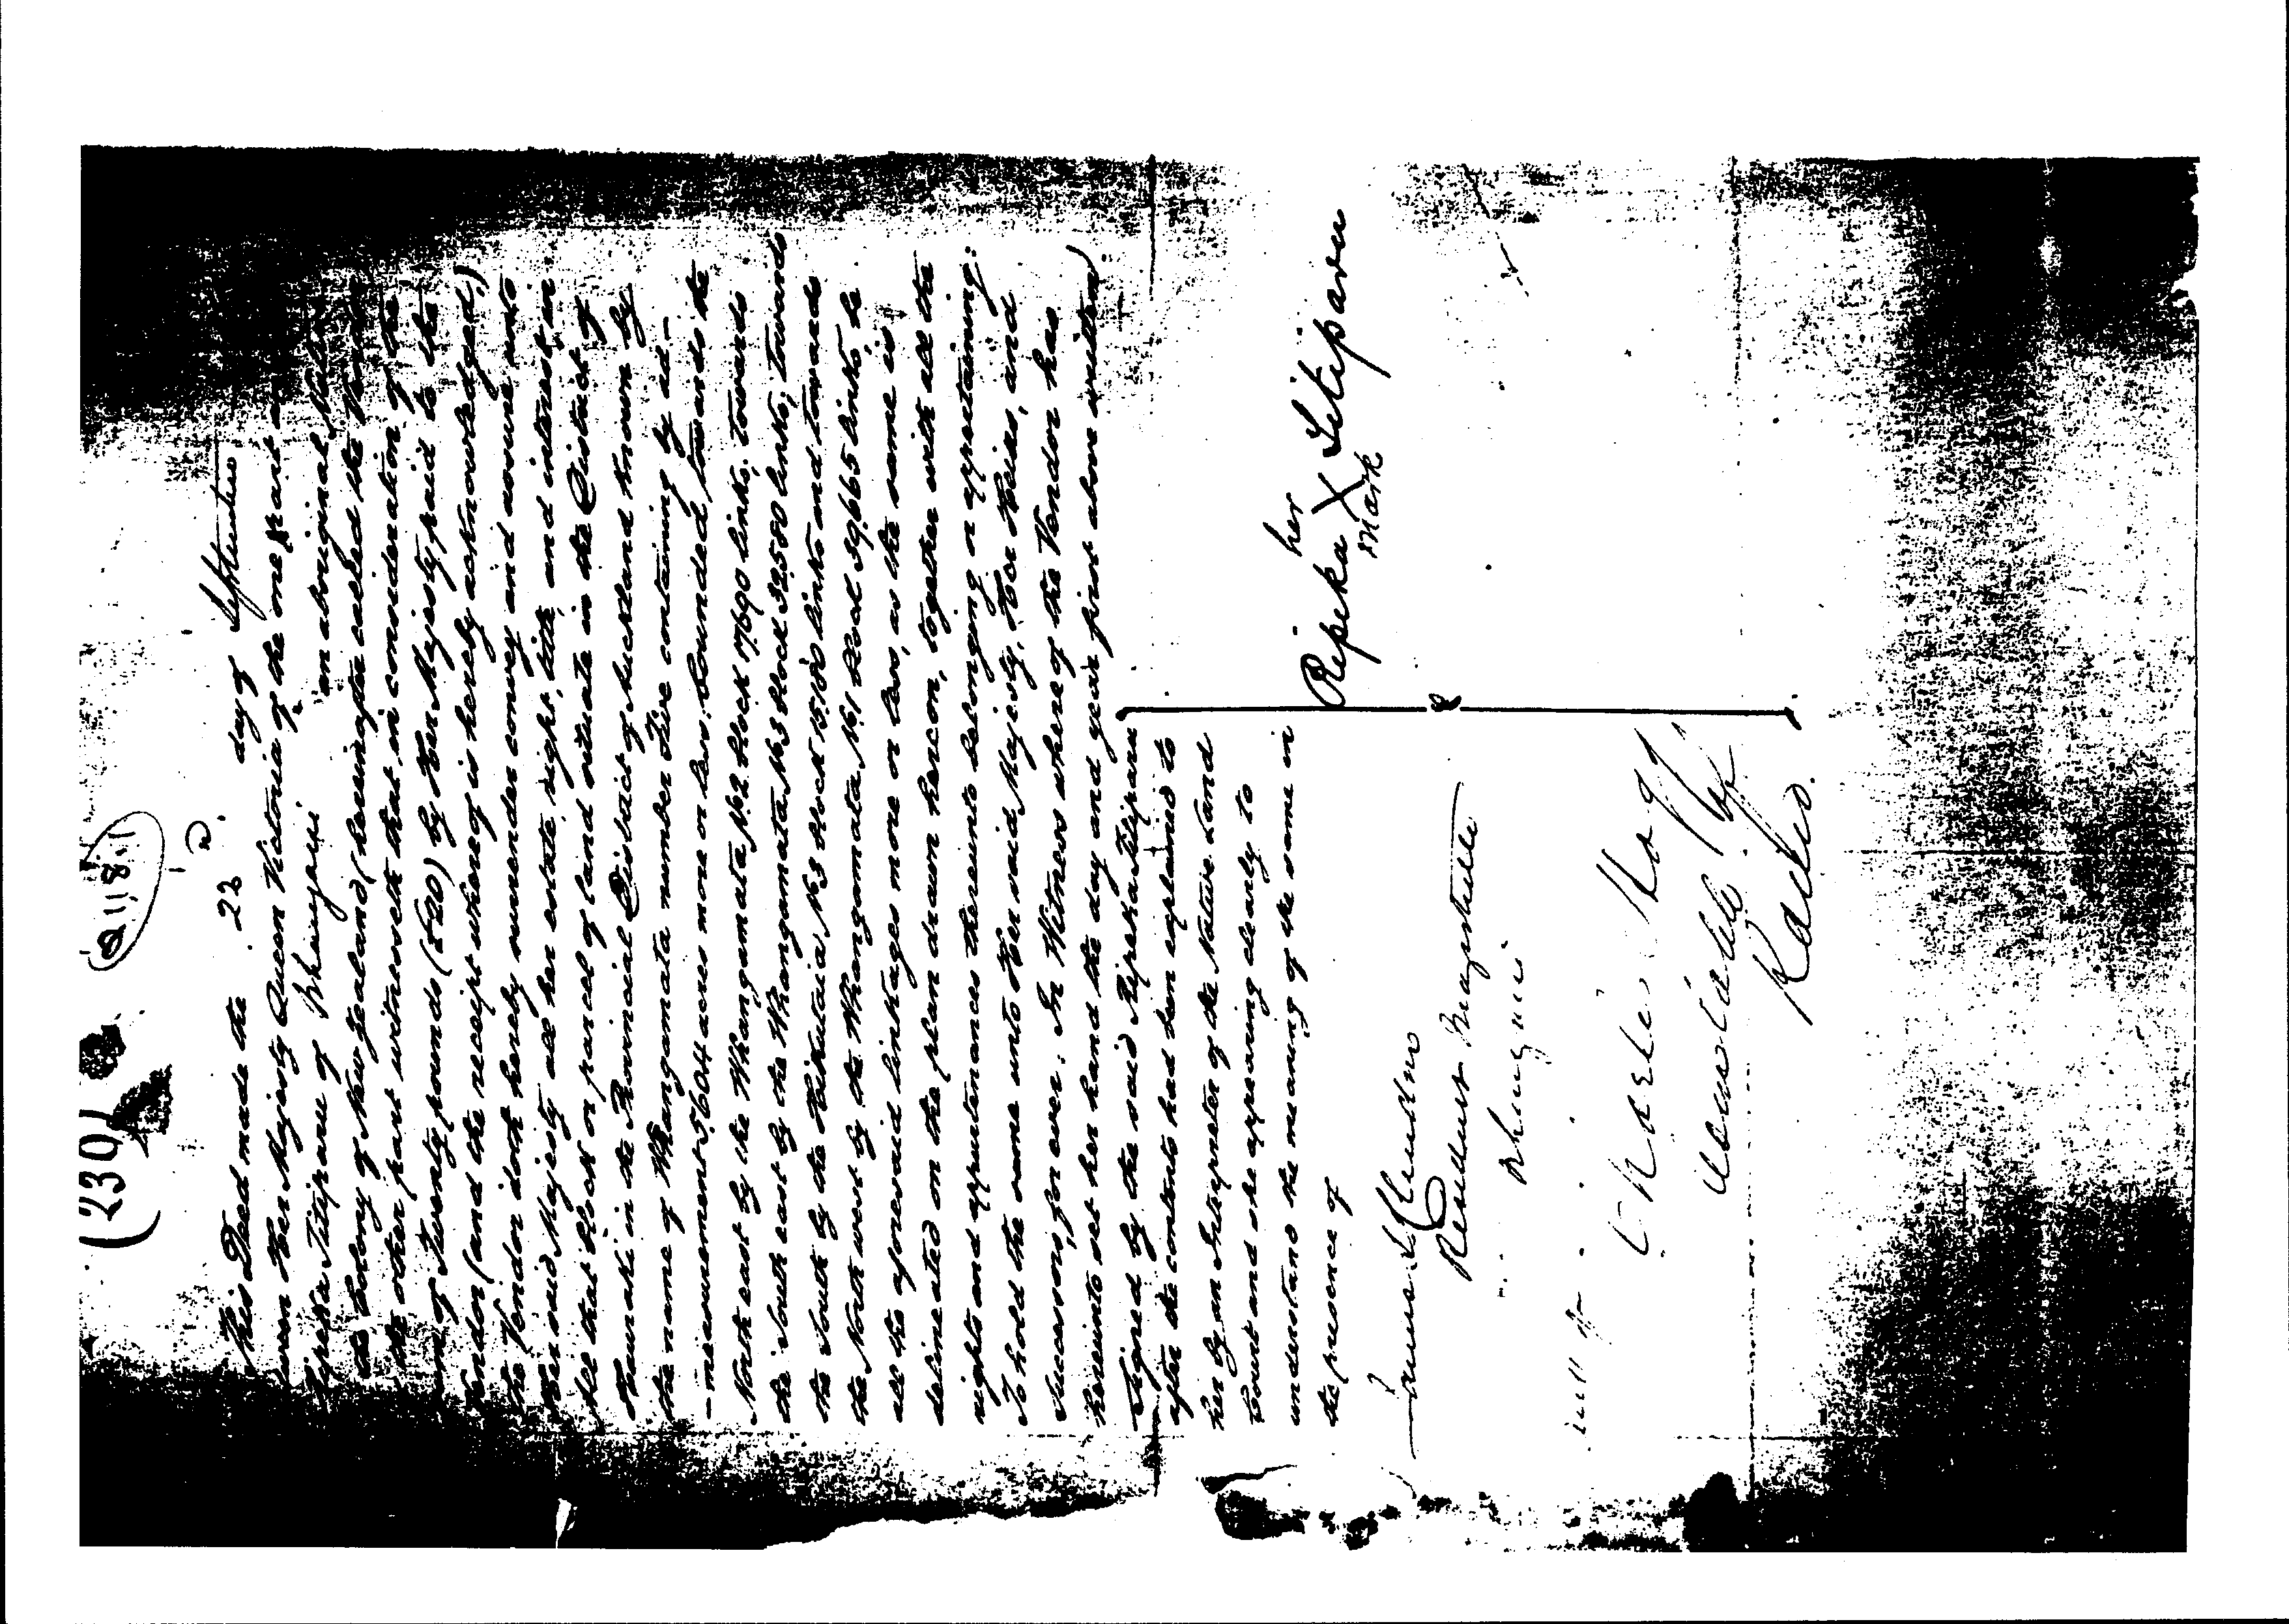 (239)
This Deed made the 22 day of September
tween Her Majesty Queen Victoria of the one part and
Ripeka Titiparu of Whaingaroa an aboriginal Native
the Colony of New Zealand (hereinafter called the Vendor
the other part witnesseth that in consideration of the
sum of Twenty pounds (£20) by Her Majesty paid to the
Vendor (and the receipt whereof is hereby acknowledged)
The Vendor doth hereby surrender convey and assure unto
Her said Majesty all her estate, right, title, and interest in
All that block or parcel of land situate in the District of
Hauraki in the Provincial District of Auckland known by
the name of Whangamata number Five containing by ad-
-measurement 5,604 acres more or less, bounded towards the
North east by the Whangamata No 2 block 17690 links, towards
the South east by the Whangamata No 3 block 32580 links, towards
the South by the Hikutaia No 3 block 15180 links and towards
the North west by the Whangamata No 1 block 39665 links, be
all the aforesaid linkages more or less, as the same is
delineated on the plan drawn hereon, together with all the
rights and appurtenances thereunto belonging or appertaining:
To hold the same unto Her said Majesty, Her Heirs, and
Successors, for ever: In Witness whereof the Vendor has
hereunto set her hand the day and year first above written
Signed by the said Ripeka Titiparu
after the contents had been explained to
her by an Interpreter of the Native Land
Court and she appearing clearly to
understand the meaning of the same in
the presence of
her
Ripeka X Titiparu
mark
Resident Magistrate
Charles
Constable